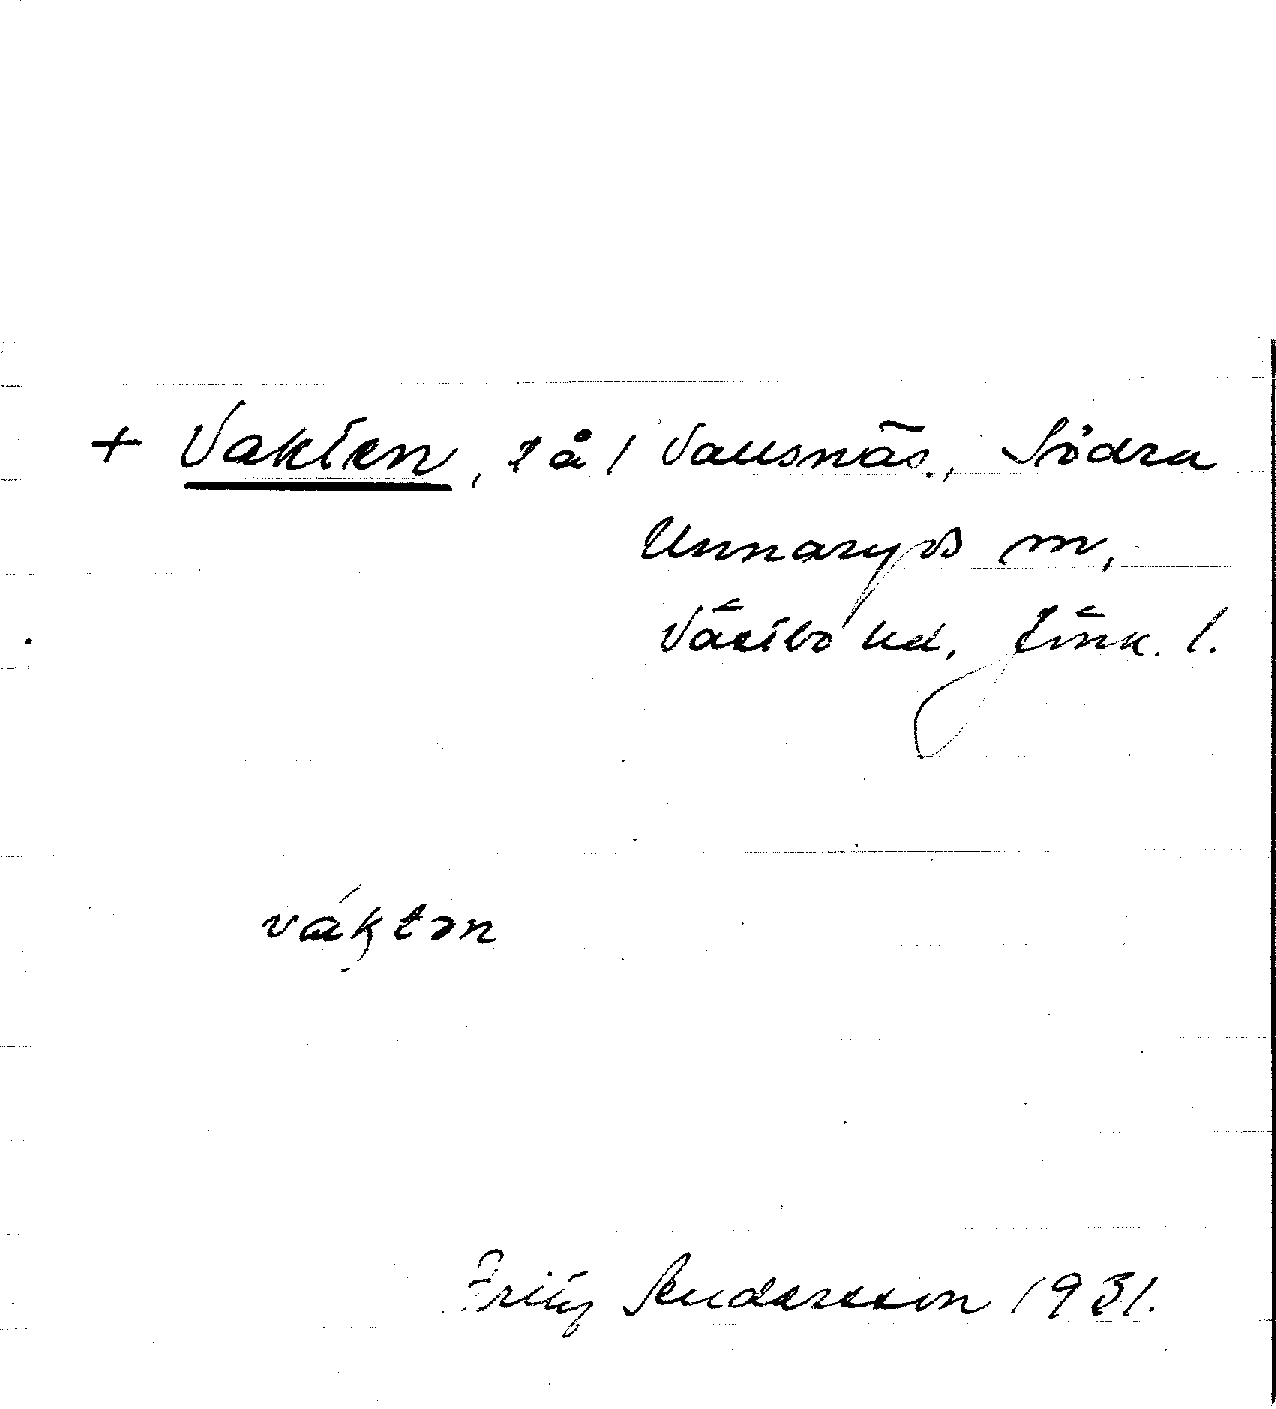 + Vakten, på / Vallsnäs, Södra
Unnaryds sn,
Västbo hd, Jönk. l.
váktən
Fritz Andersson 1931.